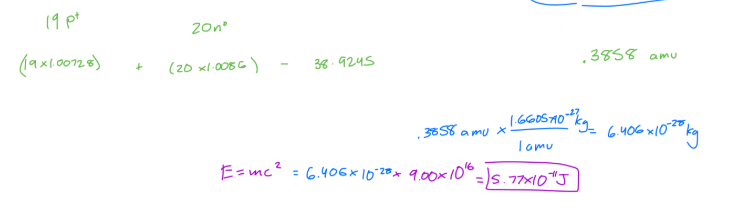 19 p⁺ 20n⁰
(19x1.00728) + (20 x1.0086) - 38.9245 .3858 amu
.3858 amu x 1.6605x10⁻²⁷kg / 1 amu = 6.406x10⁻²⁸ kg
E=mc² = 6.406x10⁻²⁸x 9.00x10¹⁶ = 5.77x10⁻¹¹J